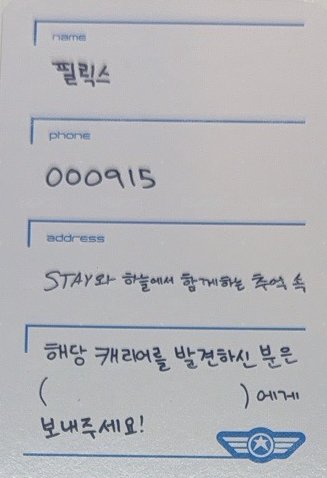 name
필릭스
phone
000915
address
STAY와 하늘에서 함께하는 추억 속
해당 캐리어를 발견하신 분은
( ) 에게
보내주세요!